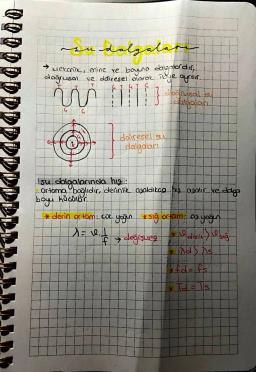 su dalgaları
→ mekanik, enine ve boyuna dalgalardır,
doğrusal ve dairesel olarak ikiye ayrılır.
doğrusal su
dalgaları
dairesel su
dalgaları
su dalgalarında hız:
ortama bağlıdır, derinlik azaldıkça hız azalır ve dalga
boyu küçülür.
* derin ortam: çok yoğun * sığ ortam: az yoğun
λ = v.1/f → değişmez
* Vderin > Vsığ
* λd > λs
* fd = fs
* Td = Ts